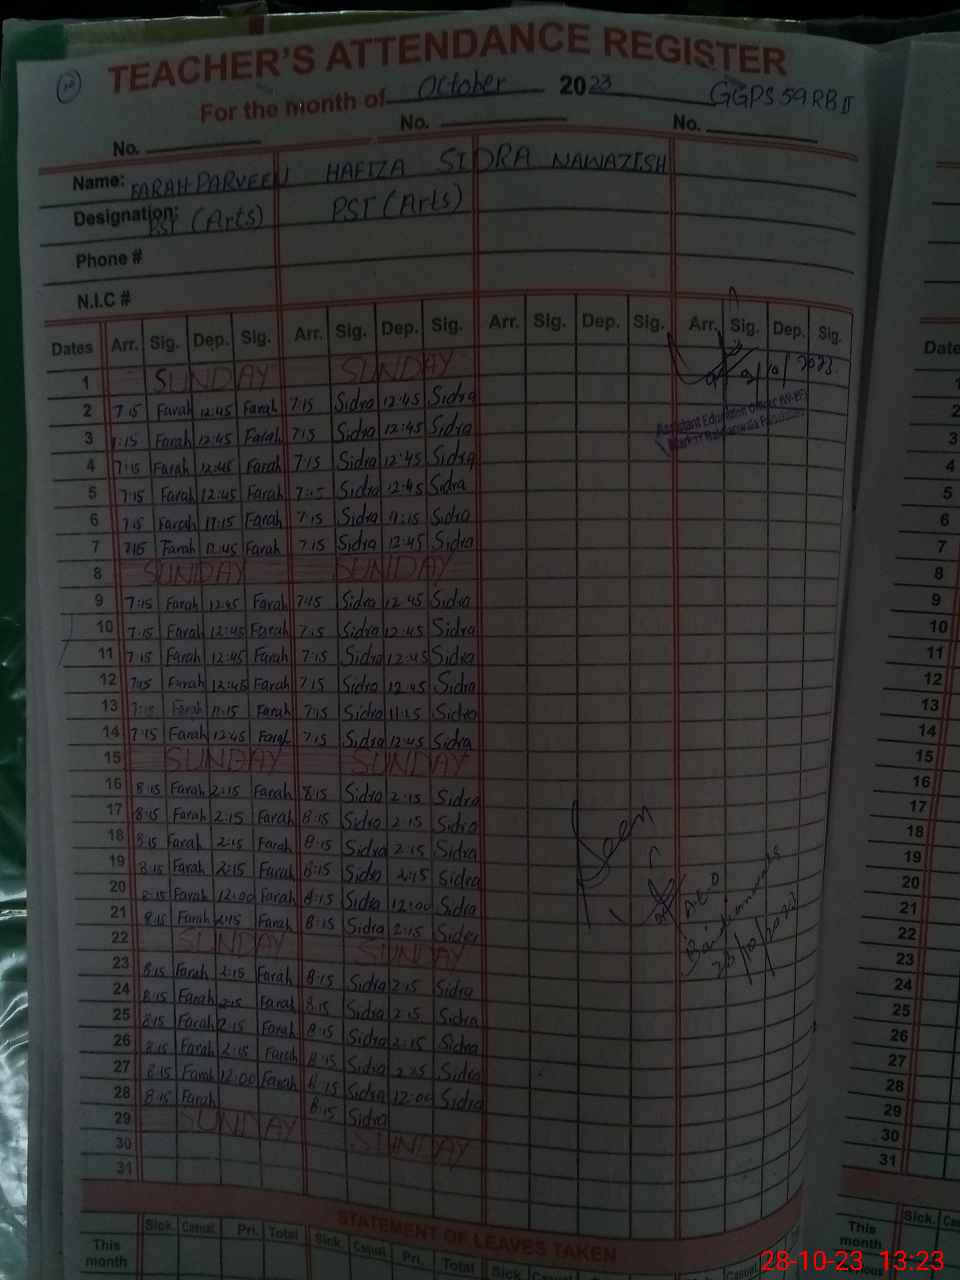 TEACHER'S ATTENDANCE REGISTER
For the month of October 2023 GGPS 59 RB II
No. No. No.
Name: FARAH PARVEEN HAFIZA SIDRA NAWAZISH
Designation: PST (Arts) PST (Arts)
Phone #
N.I.C #
Dates Arr. Sig. Dep. Sig. Arr. Sig. Dep. Sig. Arr. Sig. Dep. Sig. Arr. Sig. Dep. Sig.
1 SUNDAY SUNDAY
2 7:15 Farah 12:45 Farah 7:15 Sidra 12:45 Sidra
3 7:15 Farah 12:45 Farah 7:15 Sidra 12:45 Sidra
4 7:15 Farah 12:45 Farah 7:15 Sidra 12:45 Sidra
5 7:15 Farah 12:45 Farah 7:15 Sidra 12:45 Sidra
6 7:15 Farah 11:15 Farah 7:15 Sidra 11:15 Sidra
7 7:15 Farah 12:45 Farah 7:15 Sidra 12:45 Sidra
8 SUNDAY SUNDAY
9 7:15 Farah 12:45 Farah 7:15 Sidra 12:45 Sidra
10 7:15 Farah 12:45 Farah 7:15 Sidra 12:45 Sidra
11 7:15 Farah 12:45 Farah 7:15 Sidra 12:45 Sidra
12 7:15 Farah 12:45 Farah 7:15 Sidra 12:45 Sidra
13 7:15 Farah 11:15 Farah 7:15 Sidra 11:15 Sidra
14 7:15 Farah 12:45 Farah 7:15 Sidra 12:45 Sidra
15 SUNDAY SUNDAY
16 8:15 Farah 2:15 Farah 8:15 Sidra 2:15 Sidra
17 8:15 Farah 2:15 Farah 8:15 Sidra 2:15 Sidra
18 8:15 Farah 2:15 Farah 8:15 Sidra 2:15 Sidra
19 8:15 Farah 2:15 Farah 8:15 Sidra 2:15 Sidra
20 8:15 Farah 12:00 Farah 8:15 Sidra 12:00 Sidra
21 8:15 Farah 2:15 Farah 8:15 Sidra 2:15 Sidra
22 SUNDAY SUNDAY
23 8:15 Farah 2:15 Farah 8:15 Sidra 2:15 Sidra
24 8:15 Farah 2:15 Farah 8:15 Sidra 2:15 Sidra
25 8:15 Farah 2:15 Farah 8:15 Sidra 2:15 Sidra
26 8:15 Farah 2:15 Farah 8:15 Sidra 2:15 Sidra
27 8:15 Farah 12:00 Farah 8:15 Sidra 12:00 Sidra
28 8:15 Farah 8:15 Sidra
29 SUNDAY SUNDAY
30
31
Assistant Education Officer
Seen
A.E.O
STATEMENT OF LEAVES TAKEN
Sick. Casual Prt. Total Sick. Casual Prt. Total Sick. Casual
This month
Date
1
2
3
4
5
6
7
8
9
10
11
12
13
14
15
16
17
18
19
20
21
22
23
24
25
26
27
28
29
30
31
Sick.
This month
28-10-23 13:23